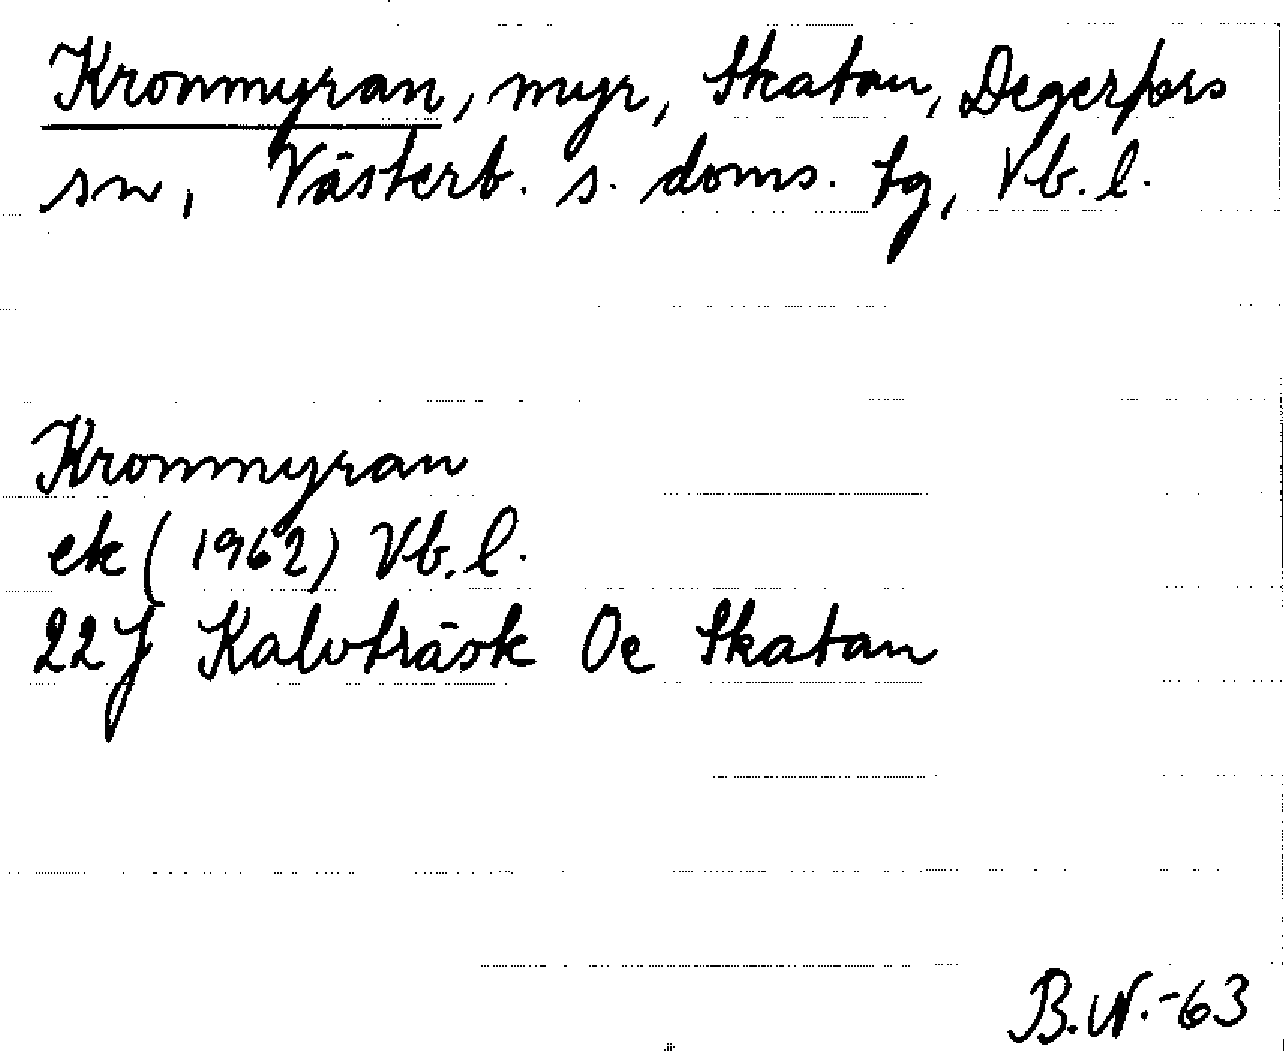 Kronmyran, myr, Skatan, Degerfors
sn, Västerb. s. doms. tg, Vb. l.
Kronmyran
ek (1962) Vb. l.
22J Kalvträsk 0e Skatan
B.N.-63